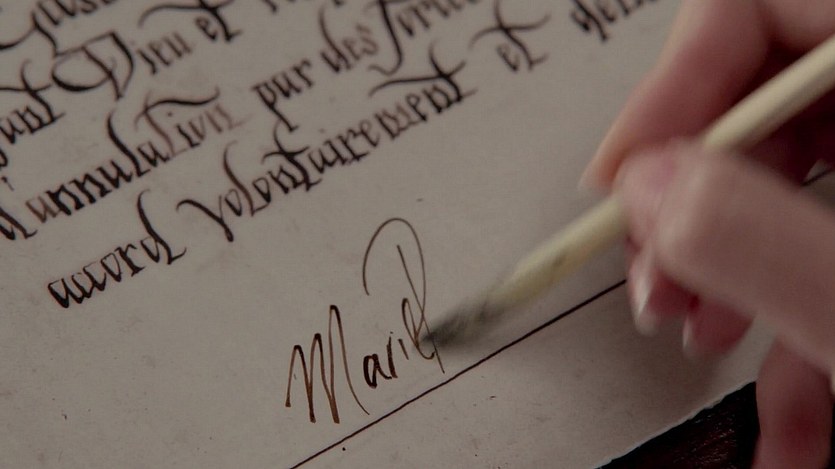 Dieu et
d'annulation par des
accord volontairement et
Marie